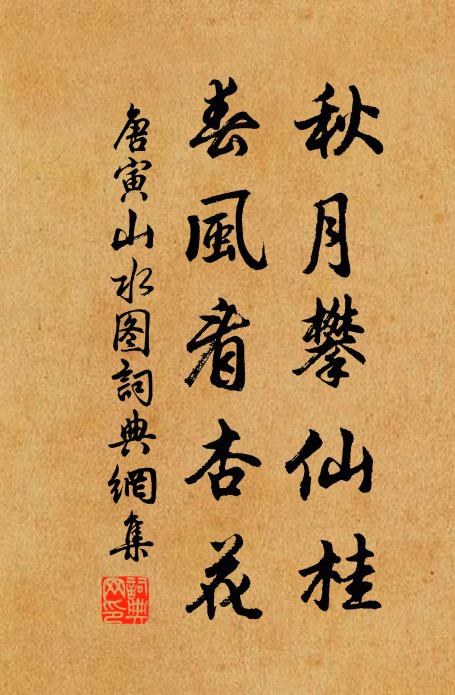 秋月攀仙桂
春風看杏花
唐寅山水图詞典網集
詞典網印